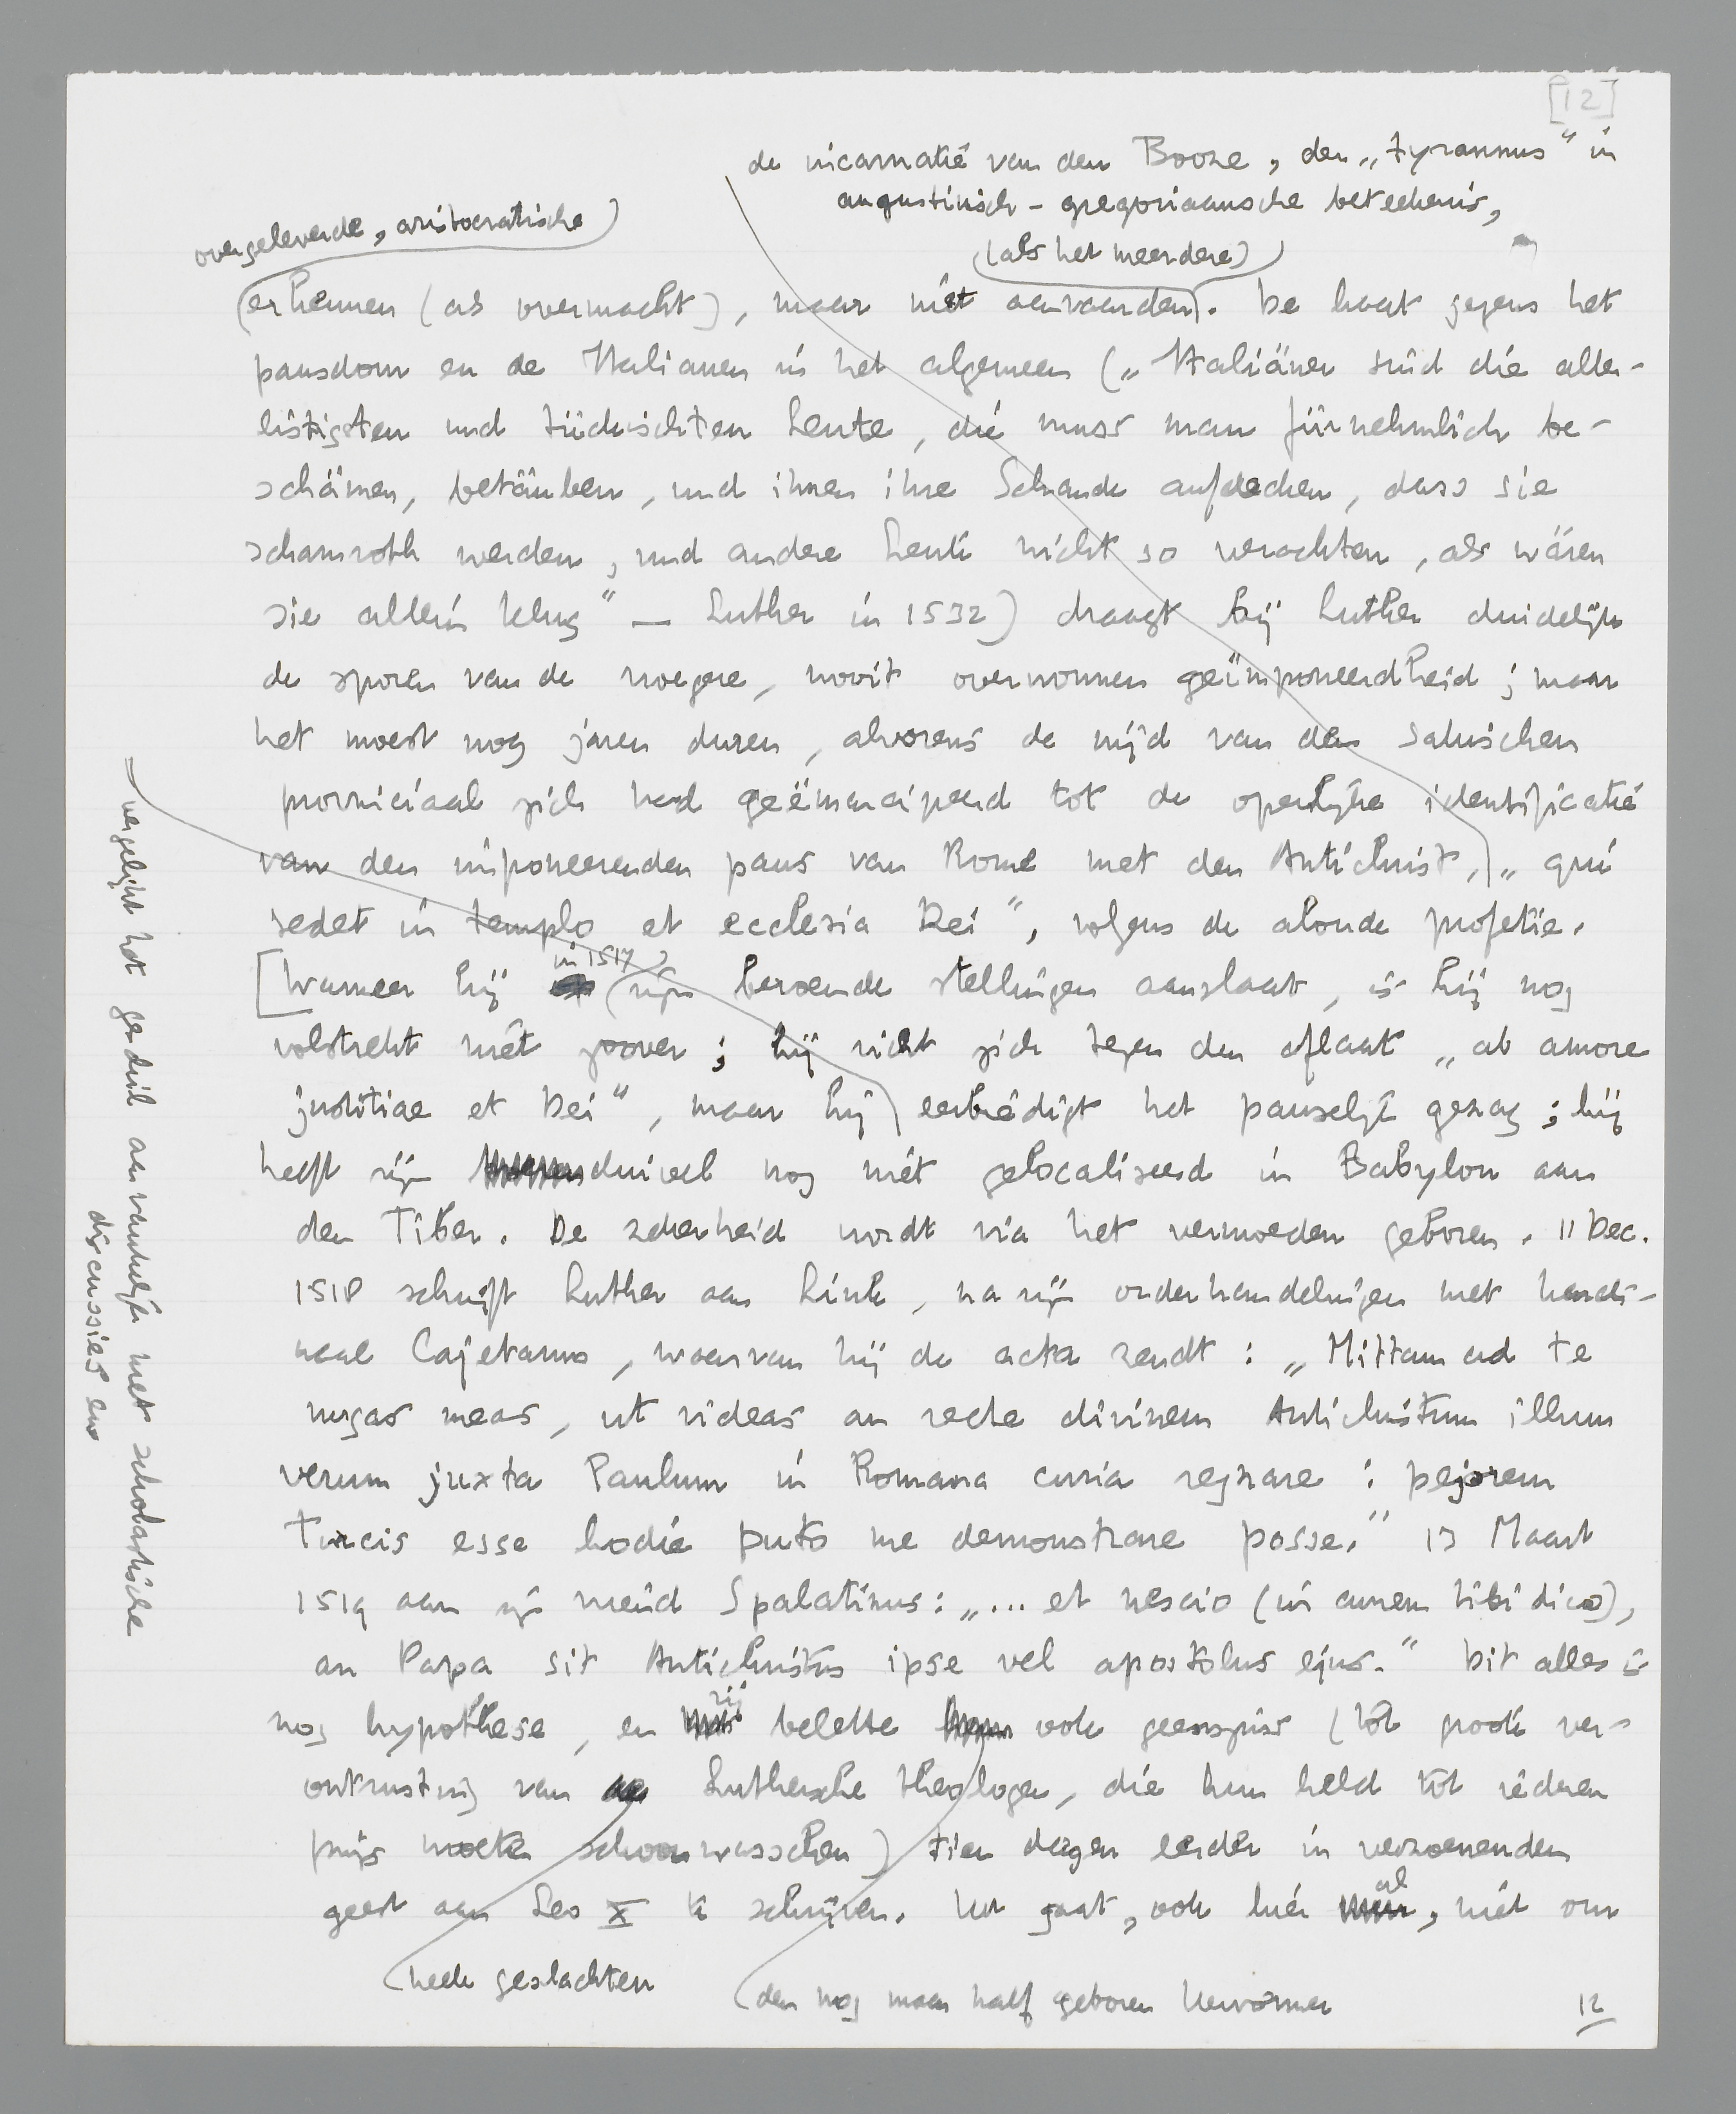 [12]
de incarnatie van den Booze, den „tyrannus" in
augustinisch-gregoriaansche beteekenis,
overgeleverde, aristocratische
(als het meerdere)
erkennen (als overmacht), maar niet aanvaarden. De haat jegens het
pausdom en de Italianen in het algemeen („Italiäner sind die aller-
listigsten und tückischten Leute, die muss man fürnehmlich be-
schämen, betäuben, und ihnen ihre Schande aufdecken, dass sie
schamroth werden, und andere Leute nicht so verachten, als wären
sie allein klug" — Luther in 1532) draagt bij Luther duidelijk
de sporen van de vroegere, nooit overwonnen geïmponeerdheid; maar
het moest nog jaren duren, alvorens de nijd van den Saksischen
provinciaal zich had geëmancipeerd tot de openlijke identificatie
van den imponeerenden paus van Rome met den Antichrist, „qui
sedet in templo et ecclesia Dei", volgens de aloude profetie.
in 1517
[Wanneer hij zijn beroemde stellingen aanslaat, is hij nog
volstrekt niet zoover; hij richt zich tegen den aflaat „ab amore
justitiae et Dei", maar hij eerbiedigt het pauselijk gezag; hij
heeft zijn duivel nog niet gelocaliseerd in Babylon aan
den Tiber. De zekerheid wordt via het vermoeden geboren. 11 Dec.
1518 schrijft Luther aan Link, na zijn onderhandelingen met kardi-
naal Cajetanus, waarvan hij de acta zendt: „Mittam ad te
nugas meas, ut videas an recte divinem Antichristum illum
verum juxta Paulum in Romana curia regnare: pejorem
Turcis esse hodie puto me demonstrare posse." 13 Maart
1519 aan zijn vriend Spalatinus: „... et nescio (in aurem tibi dico),
an Papa sit Antichristus ipse vel apostolus ejus." Dit alles is
nog hypothese, en zij belette ook geenszins (tot groote ver-
ontrusting van Luthersche theologen, die hun held tot iederen
prijs moeten schoonwasschen) tien dagen eerder in verzoenenden
geest aan Leo X te schrijven. Het gaat, ook hier al, niet om
heele geslachten
den nog maar half geboren hervormer
12
vergelijk het geduld aanvankelijk met scholastische
discussies en